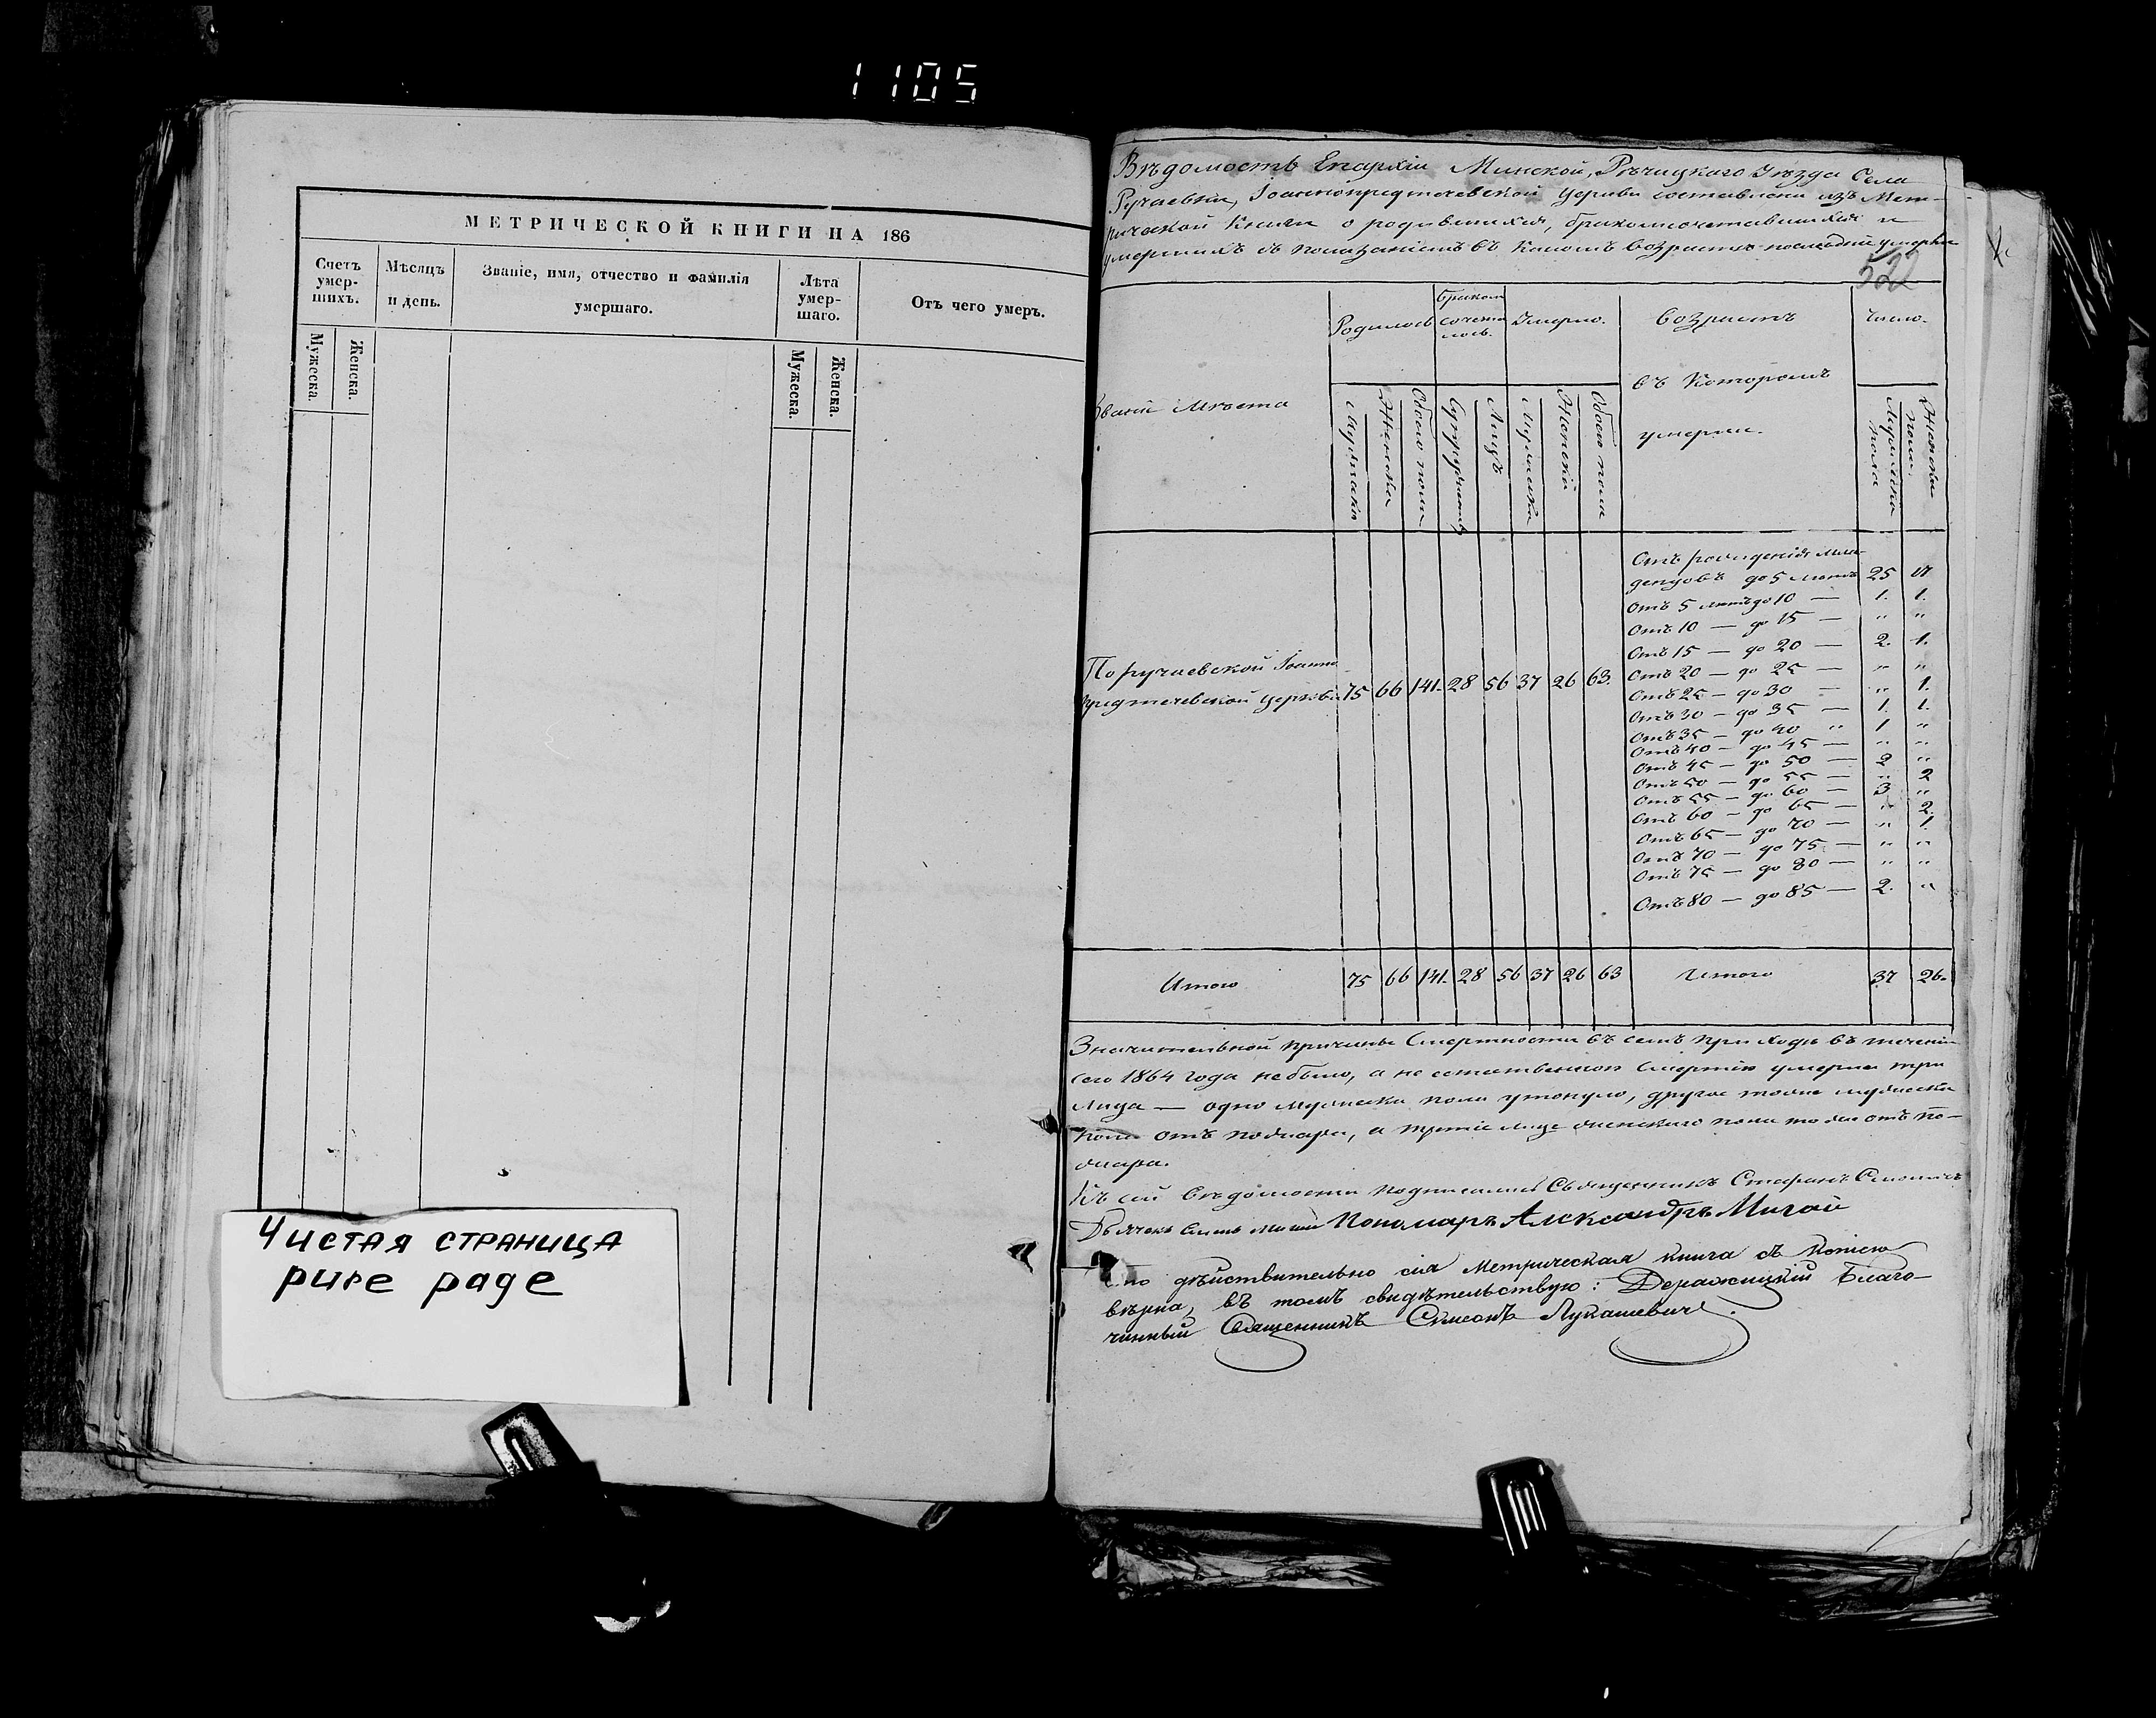 1105
МЕТРИЧЕСКОЙ КНИГИ НА 186
Счетъ умер-шихъ.
Мѣсяцъ и день.
Званіе, имя, отчество и фамилія умершаго.
Лѣта умер-шаго.
Отъ чего умеръ.
Мужеска.
Женска.
Мужеска.
Женска.
Чистая страница
pure page
Вѣдомость Епархіи Минской, Рѣчицкаго Уѣзда Села
Ручаевки, Іоаннопредтечевской Церкви составлена изъ Мет-
рической Книги о родившихся, бракомсочетавшихся и
умершихъ съ показаніемъ въ какомъ возрастѣ последніе умерли
522
Званіе Мѣста
Родилось
Браком сочета лось.
Умерло.
Возрастъ
въ Которомъ
умерли.
Число.
Мужеска
Женска
Обоего пола
Супружествъ
Лицъ
Мужеска
Женска
Обоего пола
Мужеска пола
Женска пола.
Отъ рожденія мла-
денцовъ до 5 лѣтъ 25 17
Отъ 5 лѣтъ до 10 — 1. 1.
Отъ 10 — до 15 — " "
Отъ 15 — до 20 — 2. 1.
Отъ 20 — до 25 — " "
Отъ 25 — до 30 — " 1.
Отъ 30 — до 35 — 1. 1.
Отъ 35 — до 40 " 1 "
Отъ 40 — до 45 — " "
Отъ 45 — до 50 — 2 "
Отъ 50 — до 55 — " 2
Отъ 55 — до 60 — 3 "
Отъ 60 — до 65 — " 2.
Отъ 65 — до 70 — " 1.
Отъ 70 — до 75 — " "
Отъ 75 — до 80 — " "
Отъ 80 — до 85 — 2. "
По ручаевской Іоанно
предтечевской церкви 75 66 141. 28 56 37 26 63.
Итого 75 66 141. 28 56 37 26 63 Итого 37 26.
Значительной причины Смертности въ семъ приходѣ въ теченіи
сего 1864 года небыло, а не естественною Смертію умерли три
Лица — одно мужеска пола утонуло, другое тоже мужеска
пола отъ пожара, а третіе лице женскаго пола тоже отъ по-
жара.
Къ сей Вѣдомости подписались Священникъ Стефанъ
Дьячекъ Пономарь Александръ Мигай
Что дѣйствительно сія Метрическая книга съ копіею
вѣрна, въ томъ свидѣтельствую: Деражицкій Благо-
чинный Священникъ Симеонъ Лукашевичъ.